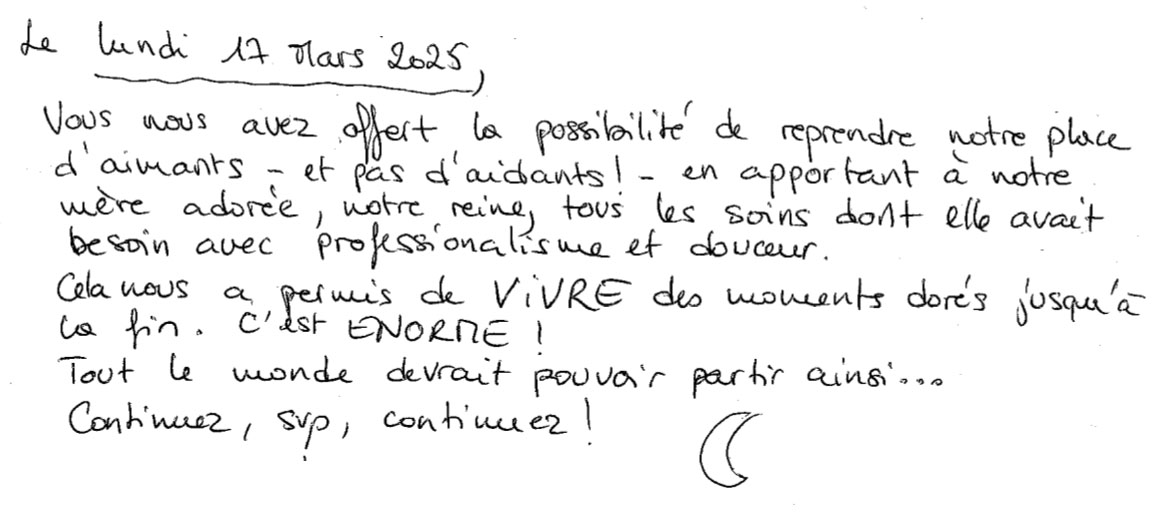 Le lundi 17 Mars 2025,
Vous nous avez offert la possibilité de reprendre notre place
d'aimants - et pas d'aidants! - en apportant à notre
mère adorée, notre reine, tous les soins dont elle avait
besoin avec professionalisme et douceur.
Cela nous a permis de ViVRE des moments dorés jusqu'à
la fin. C'est ENORME !
Tout le monde devrait pouvoir partir ainsi...
Continuez, svp, continuez !